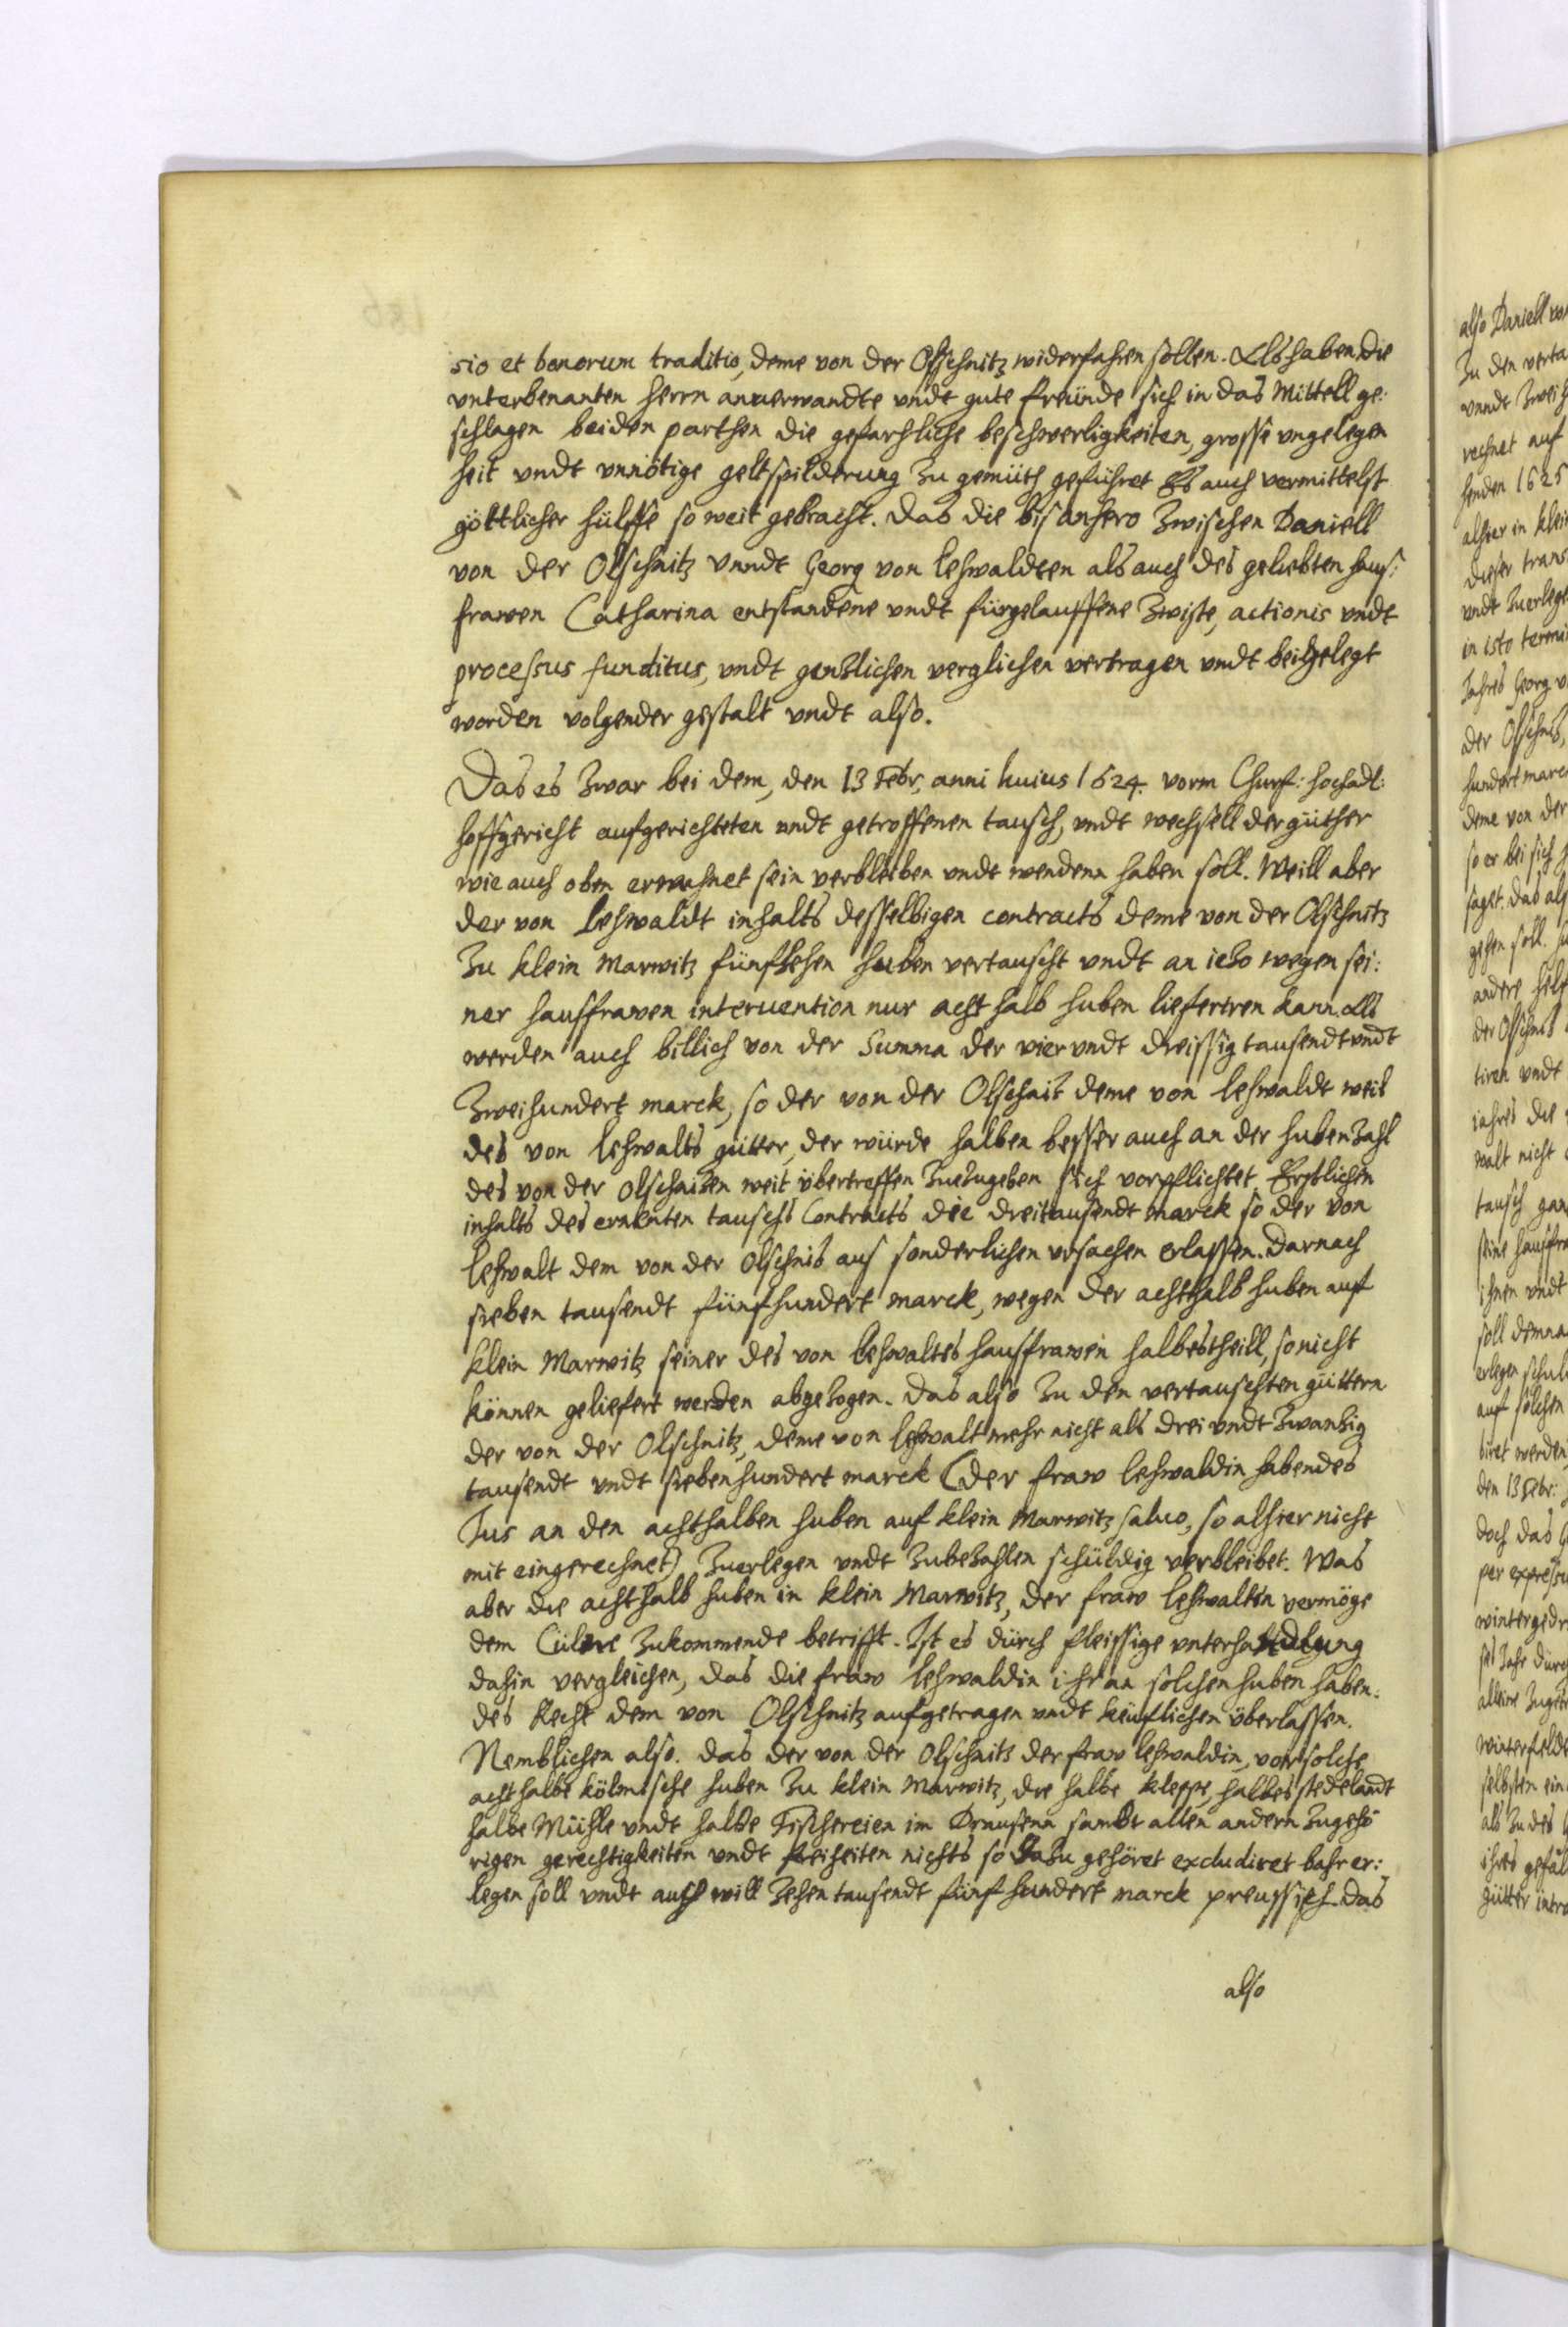 sio et bonorum traditio, deme von der Olsschnitz widerfahren sollen. Als haben die
unterbenanten herrn anuerwandte undt gute freunde sich in das Mittell ge:
schlagen beiden parthen die gefarhliche beschwerligkeiten, grosse ungelegen
heit undt unnötige geltspilderung zu gemüth geführet Es auch vermittelst
göttlicher hülffe so weit gebracht. das die bis anhero zwischen Daniell
von der Olschnitz unndt Georg von lehwaldten als auch des geliebten haus:
frawen Catharina entstandene undt fürgelauffene zwiste, actionis undt
processus funditus, undt gentzlichen verglichen vertragen undt beihgelegt
worden volgender gestalt undt also.
Das es zwar bei dem, den 13 Febr, anni huius 1624. vorm Churf: hochadl:
hoffgericht aufgerichteten undt getroffenen tausch, undt wechsell der güther
wie auch oben erwehnet sein verbleiben undt wendenn haben soll. Weill aber
der von Lehwaldt inhalts desselbigen contracts deme von der Olschnitz
zu klein Marwitz fünfzehen huben vertauscht undt an iezo wegen sei:
ner hausfrawen interuention nur acht halb huben liefertren kann. Als
werden auch billich von der Summa der vier undt dreissig tausendt undt
zweihundert marck, so der von der Olschnitz deme von lehwaldt weil
des von lehwalts gütter, der würde halben besser auch an der huben zahl
des von der Olschnizen weit übertreffen zuezugeben sich vorpflichtet, Erstlichen
inhalts des ernenten tauschs Contracts die dreitausendt marck so der von
lehwalt dem von der Olschnis aus sonderlichen ursachen erlassen. Darnach
sieben tausendt fünfhundert marck, wegen der achthalb huben auf
klein Marwitz seiner des von lehwaltes hausfrawen halbestheill, so nicht
können geliefert werden abgezogen. das also zu den vertauschten güttern
der von der Olschnitz, deme von lehwalt mehr nicht als drei undt zwanzig
tausendt undt siebenhundert marck (der fraw lehwaldin habendes
Jus an den achthalben huben auf klein Marwitz saluo, so alhier nicht
mit eingerechnet) zuerlegen undt zubezahlen schüldig verbleibet. Was
aber die achthalb huben in klein Marwitz, der fraw lehwaltin vermöge
dem zukommende betrifft. Ist es dürch fleissige unterhandelung
dahin vergleichen, das die fraw lehwaldin ihr an solchen huben haben:
des Recht dem von Olschnitz aufgetragen undt keuflichen überlassen.
Nemblichen also. das der von der Olschnitz der fraw lehwaldin, von solche
acht halbe kölmische huben zu klein Marwitz, die halbe kleppe, halbes stedelandt
halbe Mühle undt halbe Fischereien im Drausenn sambt allen andern zugehö
rigen gerechtigkeiten undt freiheiten nichts so dazu gehöret excludiret bahr er:
legen soll undt auch will zehen tausendt fünf hundert marck preussisch. das
also